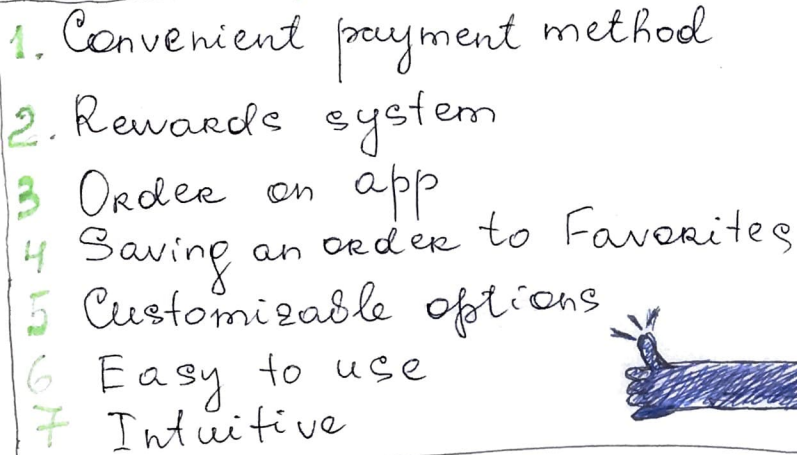 1. Convenient payment method
2. Rewards system
3 Order on app
4 Saving an order to Favorites
5 Customizable options
6 Easy to use
7 Intuitive